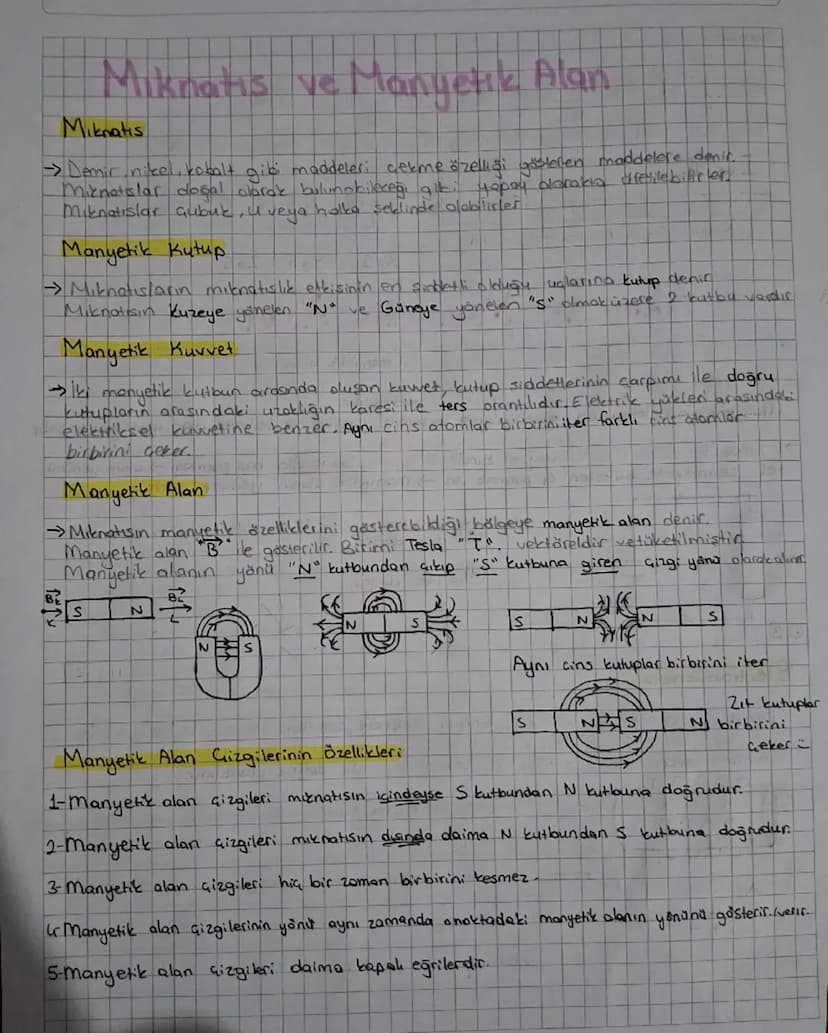 Mıknatıs ve Manyetik Alan
Mıknatıs
→ Demir, nikel, kobalt gibi maddeleri çekme özelliği gösteren maddelere denir.
Mıknatıslar doğal olarak bulunabileceği gibi yapay olarakta üretilebilirler.
Mıknatıslar çubuk, U veya halka şeklinde olabilirler
Manyetik Kutup
→ Mıknatısların mıknatıslık etkisinin en şiddetli olduğu uçlarına kutup denir
Mıknatısın Kuzeye yönelen "N" ve Güneye yönelen "S" olmak üzere 2 kutbu vardır
Manyetik Kuvvet
→ İki manyetik kutbun arasında oluşan kuvvet, kutup şiddetlerinin çarpımı ile doğru
kutupların arasındaki uzaklığın karesi ile ters orantılıdır. Elektrik yükleri arasındaki
elektriksel kuvvetine benzer. Aynı cins atomlar birbirini iter farklı cins atomlar
birbirini çeker.
Manyetik Alan
→ Mıknatısın manyetik özelliklerini gösterebildiği bölgeye manyetik alan denir.
Manyetik alan "B" ile gösterilir. Birimi Tesla "T". vektöreldir ve
Manyetik alanın yönü "N" kutbundan çıkıp "S" kutbuna giren çizgi yönü olarak alınır
S N
N S
N S
S N N S
Aynı cins kutuplar birbirini iter
S N S N
Zıt kutuplar
birbirini
çeker
Manyetik Alan Çizgilerinin Özellikleri
1-Manyetik alan çizgileri mıknatısın içindeyse S kutbundan N kutbuna doğrudur.
2-Manyetik alan çizgileri mıknatısın dışında daima N kutbundan S kutbuna doğrudur.
3-Manyetik alan çizgileri hiç bir zaman birbirini kesmez.
4-Manyetik alan çizgilerinin yönü aynı zamanda o noktadaki manyetik alanın yönünü gösterir.
5-Manyetik alan çizgileri daima kapalı eğrilerdir.